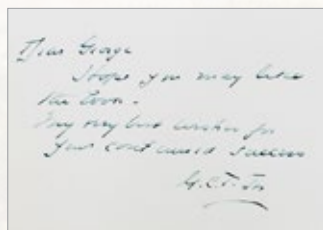 Dear George
Hope you may like
the book.
My very best wishes for
your continued success